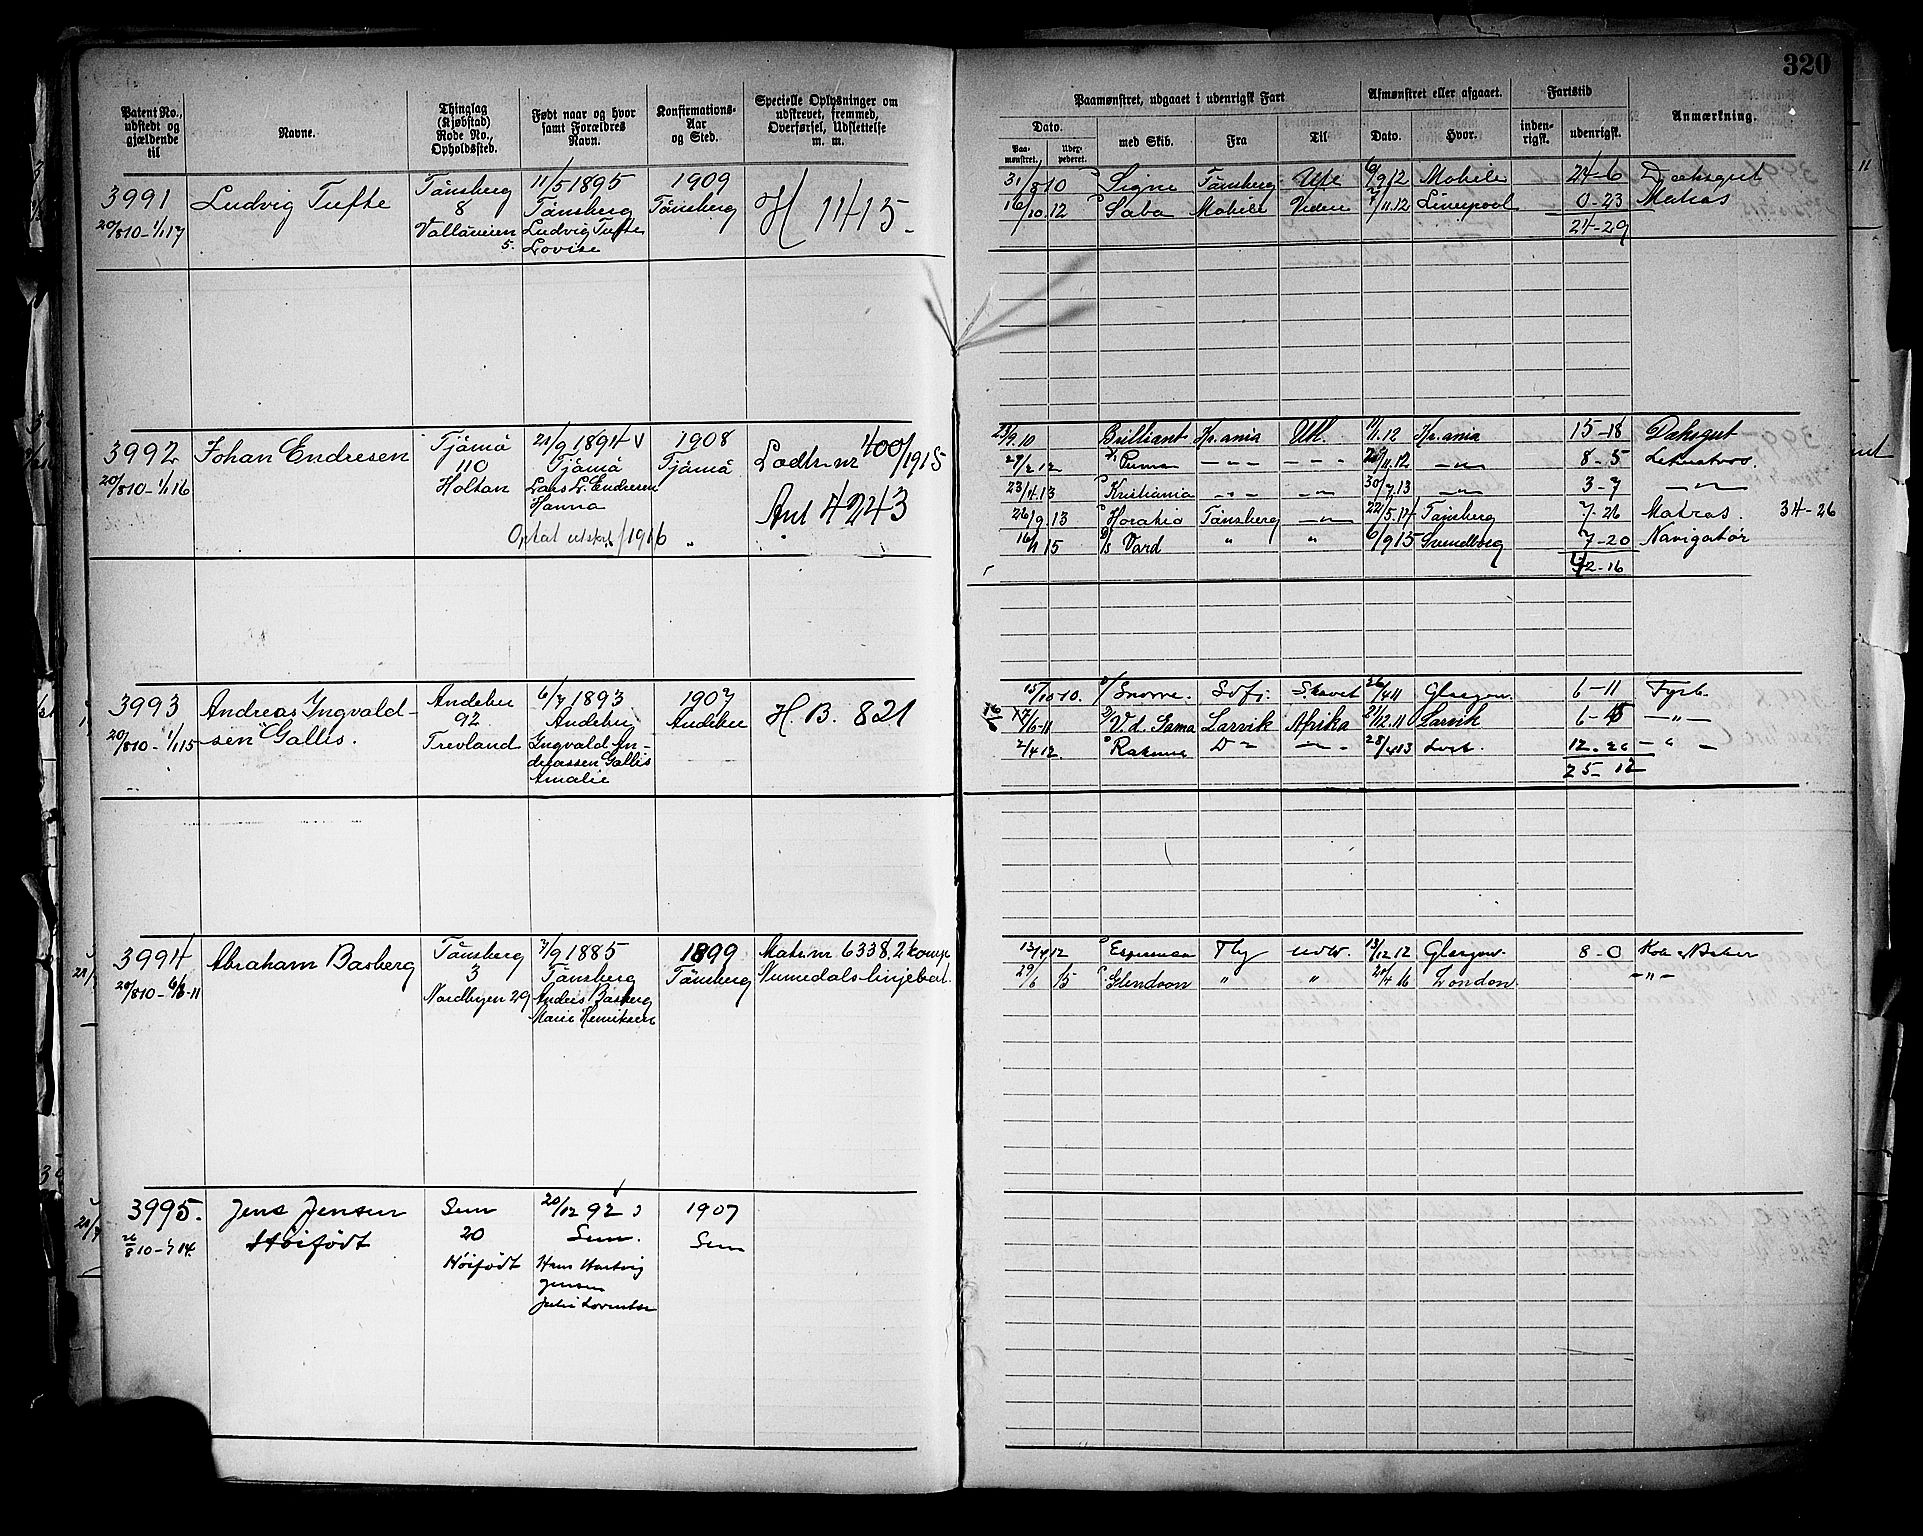 320
Patent No., udstedt og gjældende til
Navne.
Thinglag (Kjøbstad) Rode No., Opholdssteb.
Født naar og hvor samt Forældres Navn.
Konfirmations-Aar og Sted.
Specielle Oplysninger om udstrevet, fremmed, Overførsel, Udslettelse m. m.
Paamønstret, udgaaet i udenrigsk Fart
Afmønstret eller afgaaet.
Fartstid
Anmærkning.
Dato.
Paa-mønstret.
med Skib.
Fra
Til
Dato.
Hvor.
inden-rigsk.
udenrigsk.
3991
20/8 10 – 1/1 17
Ludvig Tufte
Tønsberg
8
Valløveien
5.
11/5 1895
Tønsberg
Ludvig Tufte
Lovise
1909
Tønsberg
H 1415.
31/8 10 Signe Tønsberg Ute 6/9 12 Mobile 24-6 Dæksgut
16/10.12 Saba Mobile Videre 7/11.12 Liverpool 0-23 Matros
24-29
3992
20/8 10 – 1/1 16
Johan Endresen
Tjømø
110
Holtan
21/9 1894
Tjømø
Lars L. Endresen
Hanna
1908
Tjømø
Lodtr nr 400/1915
Ant 4243
Optat utskr. /1916
23/9.10 Brilliant Kr.ania Utl. 11.12 Kr.ania 15-18 Dæksgut
27/2 12 Puma 11.12 8-5 Letmatros.
23/4.13 Kristiania 30/7.13 3-7
26/9.13 Horatio Tønsberg 22/5.14 Tønsberg 7-26 Matros. 34-26
16/1 15 D/S Vard " " 6/9 15 Svendborg 7-20 Navigatør
42-16
3993
20/8 10 – 1/1 15
Andreas Ingvald-
sen Gallis.
Andebu
92
Trevland
6/7 1893
Andebu
Ingvald An-
dreassen Gallis
Amalie
1907
Andebu
H. B. 821
15/10-10. Snorre. Sdfj. Skavet 26/4 11 Glasgow. 6-11 Fyrb.
17/6-11 V. d. Gama Larvik Afrika 21/12.11 Larvik
2/4 12. Rakuna Do 28/4 13 12.26
25-12
3994
20/8 10 – 6/6-11
Abraham Basberg
Tønsberg
3
Nordbyen 29
7/9 1885
Tønsberg
Anders Basberg
Marie Henriksen
1899
Tønsberg
Matr. nr 6338, 2 komp
Numedals linjebat.
13/4 12 Esperansa Tbg udw. 13/12 12 Glasgow. 8-0 Kok
29/6 15 Glendoon " " 20/4 16 London. -"-
3995.
26/8 10 – 1/1 14.
Jens Jensen
Høifødt
Sem
20
Høifødt
20/12 92
Sem.
Hans Hartvig
Jensen
Julie Lorentse
1907
Sem